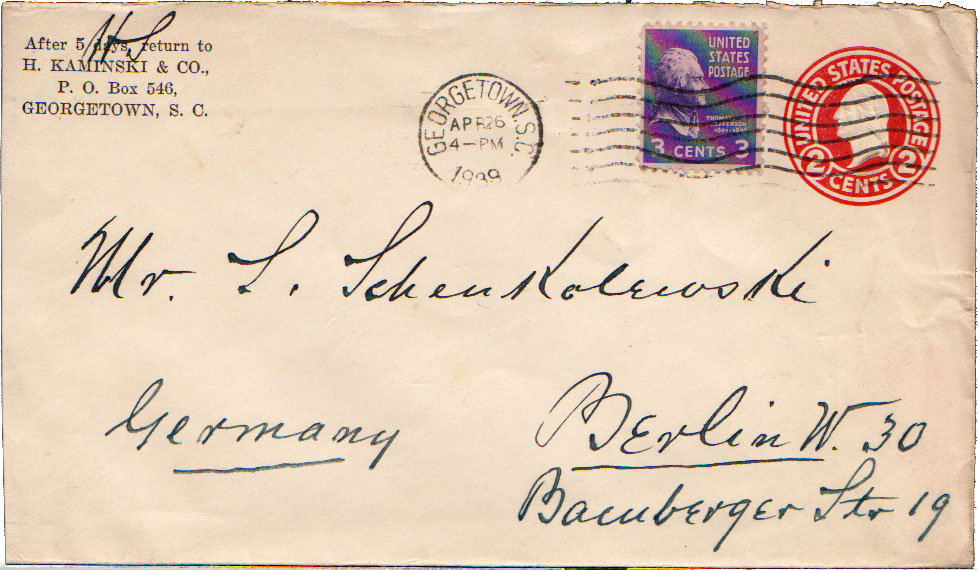 After 5 days, return to
H. KAMINSKI & CO.,
P. O. Box 546,
GEORGETOWN, S. C.
GEORGETOWN, S.C.
APR 26
4-PM
1939
UNITED
STATES
POSTAGE
THOMAS
JEFFERSON
1801-1809
3 CENTS 3
UNITED STATES POSTAGE
2 CENTS 2
Mr. L. Schenkolewski
Germany
Berlin W. 30
Bamberger Str 19